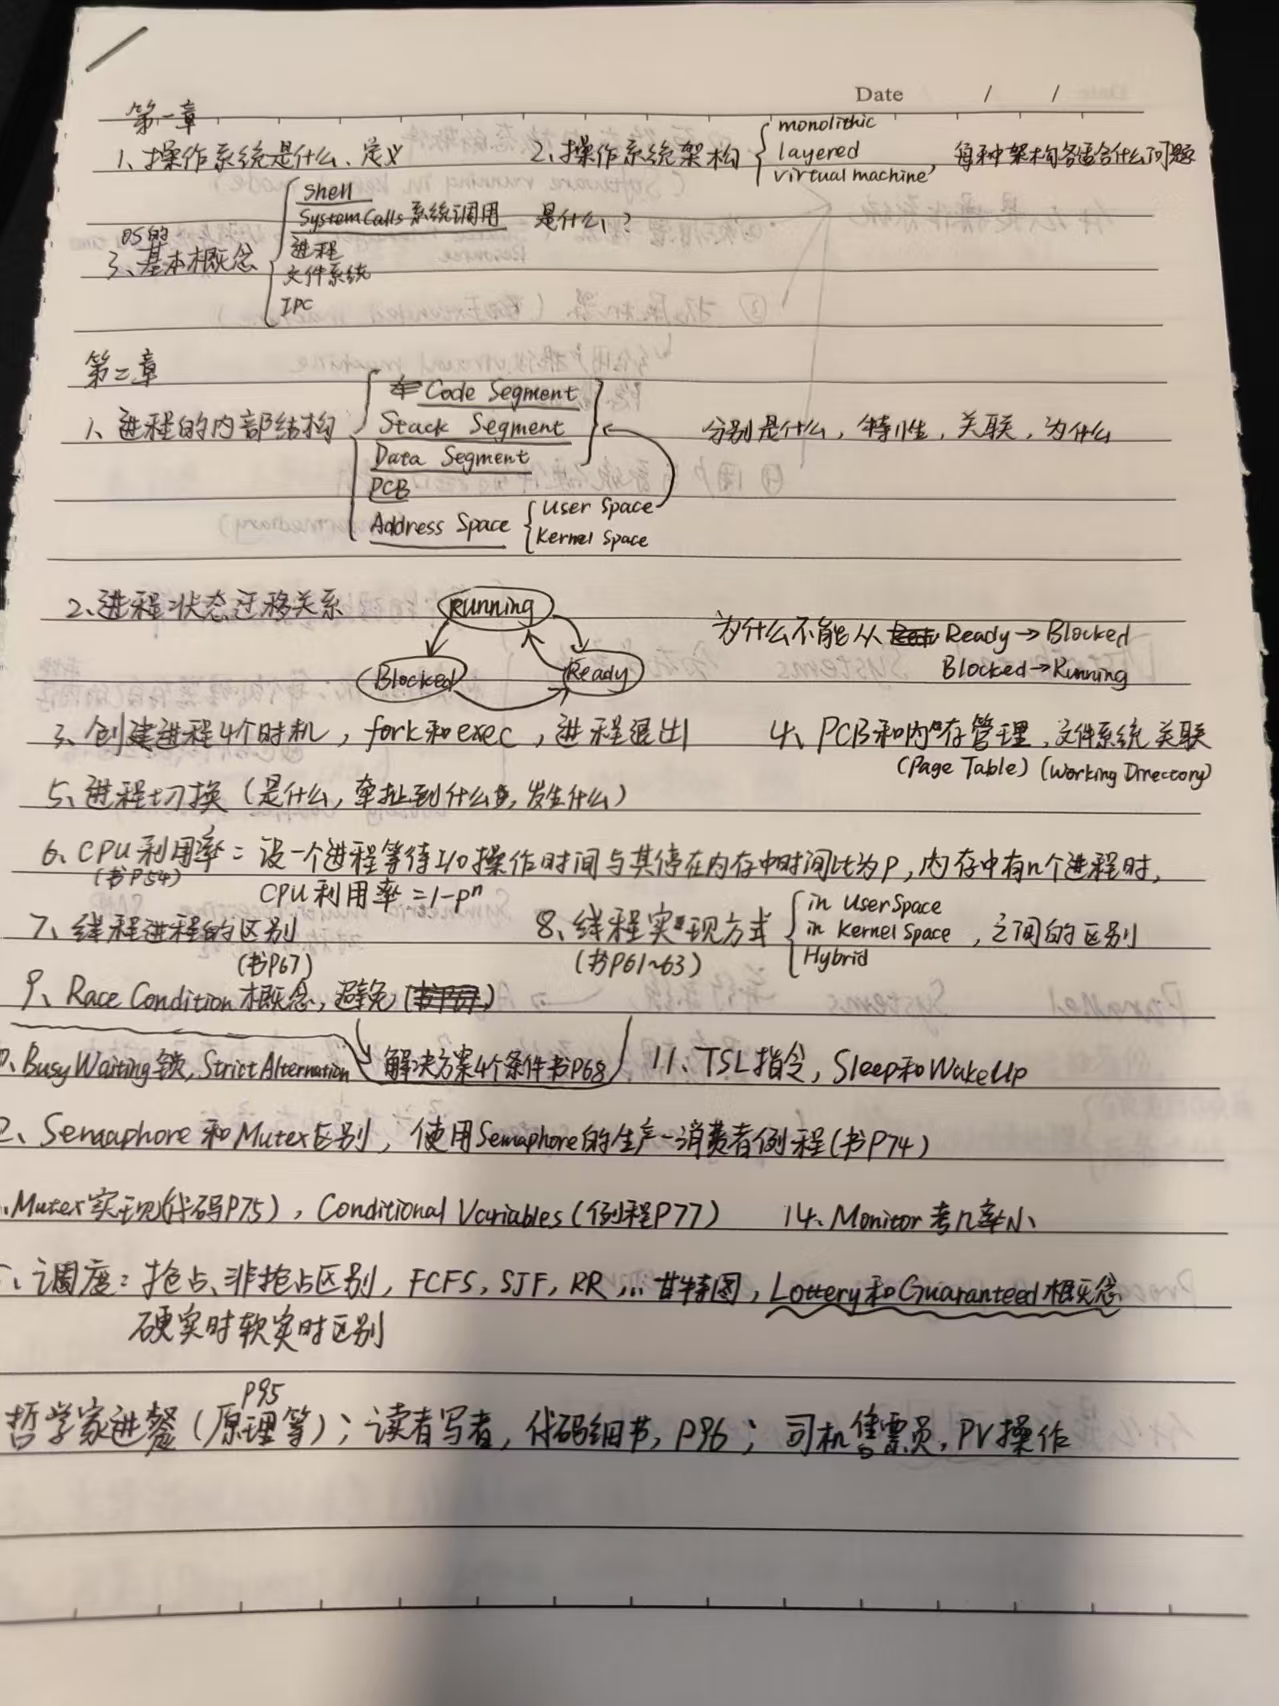 Date / /
第一章
1、操作系统是什么、定义
2、操作系统架构
monolithic
layered
virtual machine
，每种架构各适合什么问题
OS的
3、基本概念
Shell
System Calls 系统调用
进程
文件系统
IPC
是什么？
第二章
1、进程的内部结构
Code Segment
Stack Segment
Data Segment
PCB
Address Space
User Space
Kernel Space
分别是什么，特性，关联，为什么
2、进程状态迁移关系
Running
Blocked
Ready
为什么不能从 Ready→Blocked
Blocked→Running
3、创建进程4个时机，fork和exec，进程退出
4、PCB和内存管理、文件系统关联
(Page Table) (Working Directory)
5、进程切换（是什么，牵扯到什么，发生什么）
6、CPU利用率：设一个进程等待I/O操作时间与其停在内存中时间比为P，内存中有n个进程时，
(书P54)
CPU利用率=1-pⁿ
7、线程进程的区别
(书P67)
8、线程实现方式
(书P61~63)
in User Space
in Kernel Space
Hybrid
，之间的区别
9、Race Condition概念，避免
0、Busy Waiting锁，Strict Alternation
解决方案4个条件书P68
11、TSL指令，Sleep和WakeUp
2、Semaphore和Mutex区别，使用Semaphore的生产-消费者例程(书P74)
、Mutex实现(代码P75)，Conditional Variables(例程P77)
14、Monitor考几率小
、调度：抢占、非抢占区别，FCFS，SJF，RR，... 甘特图，Lottery和Guaranteed概念
硬实时软实时区别
P95
哲学家进餐(原理等)；读者写者，代码细节，P96；司机售票员，PV操作